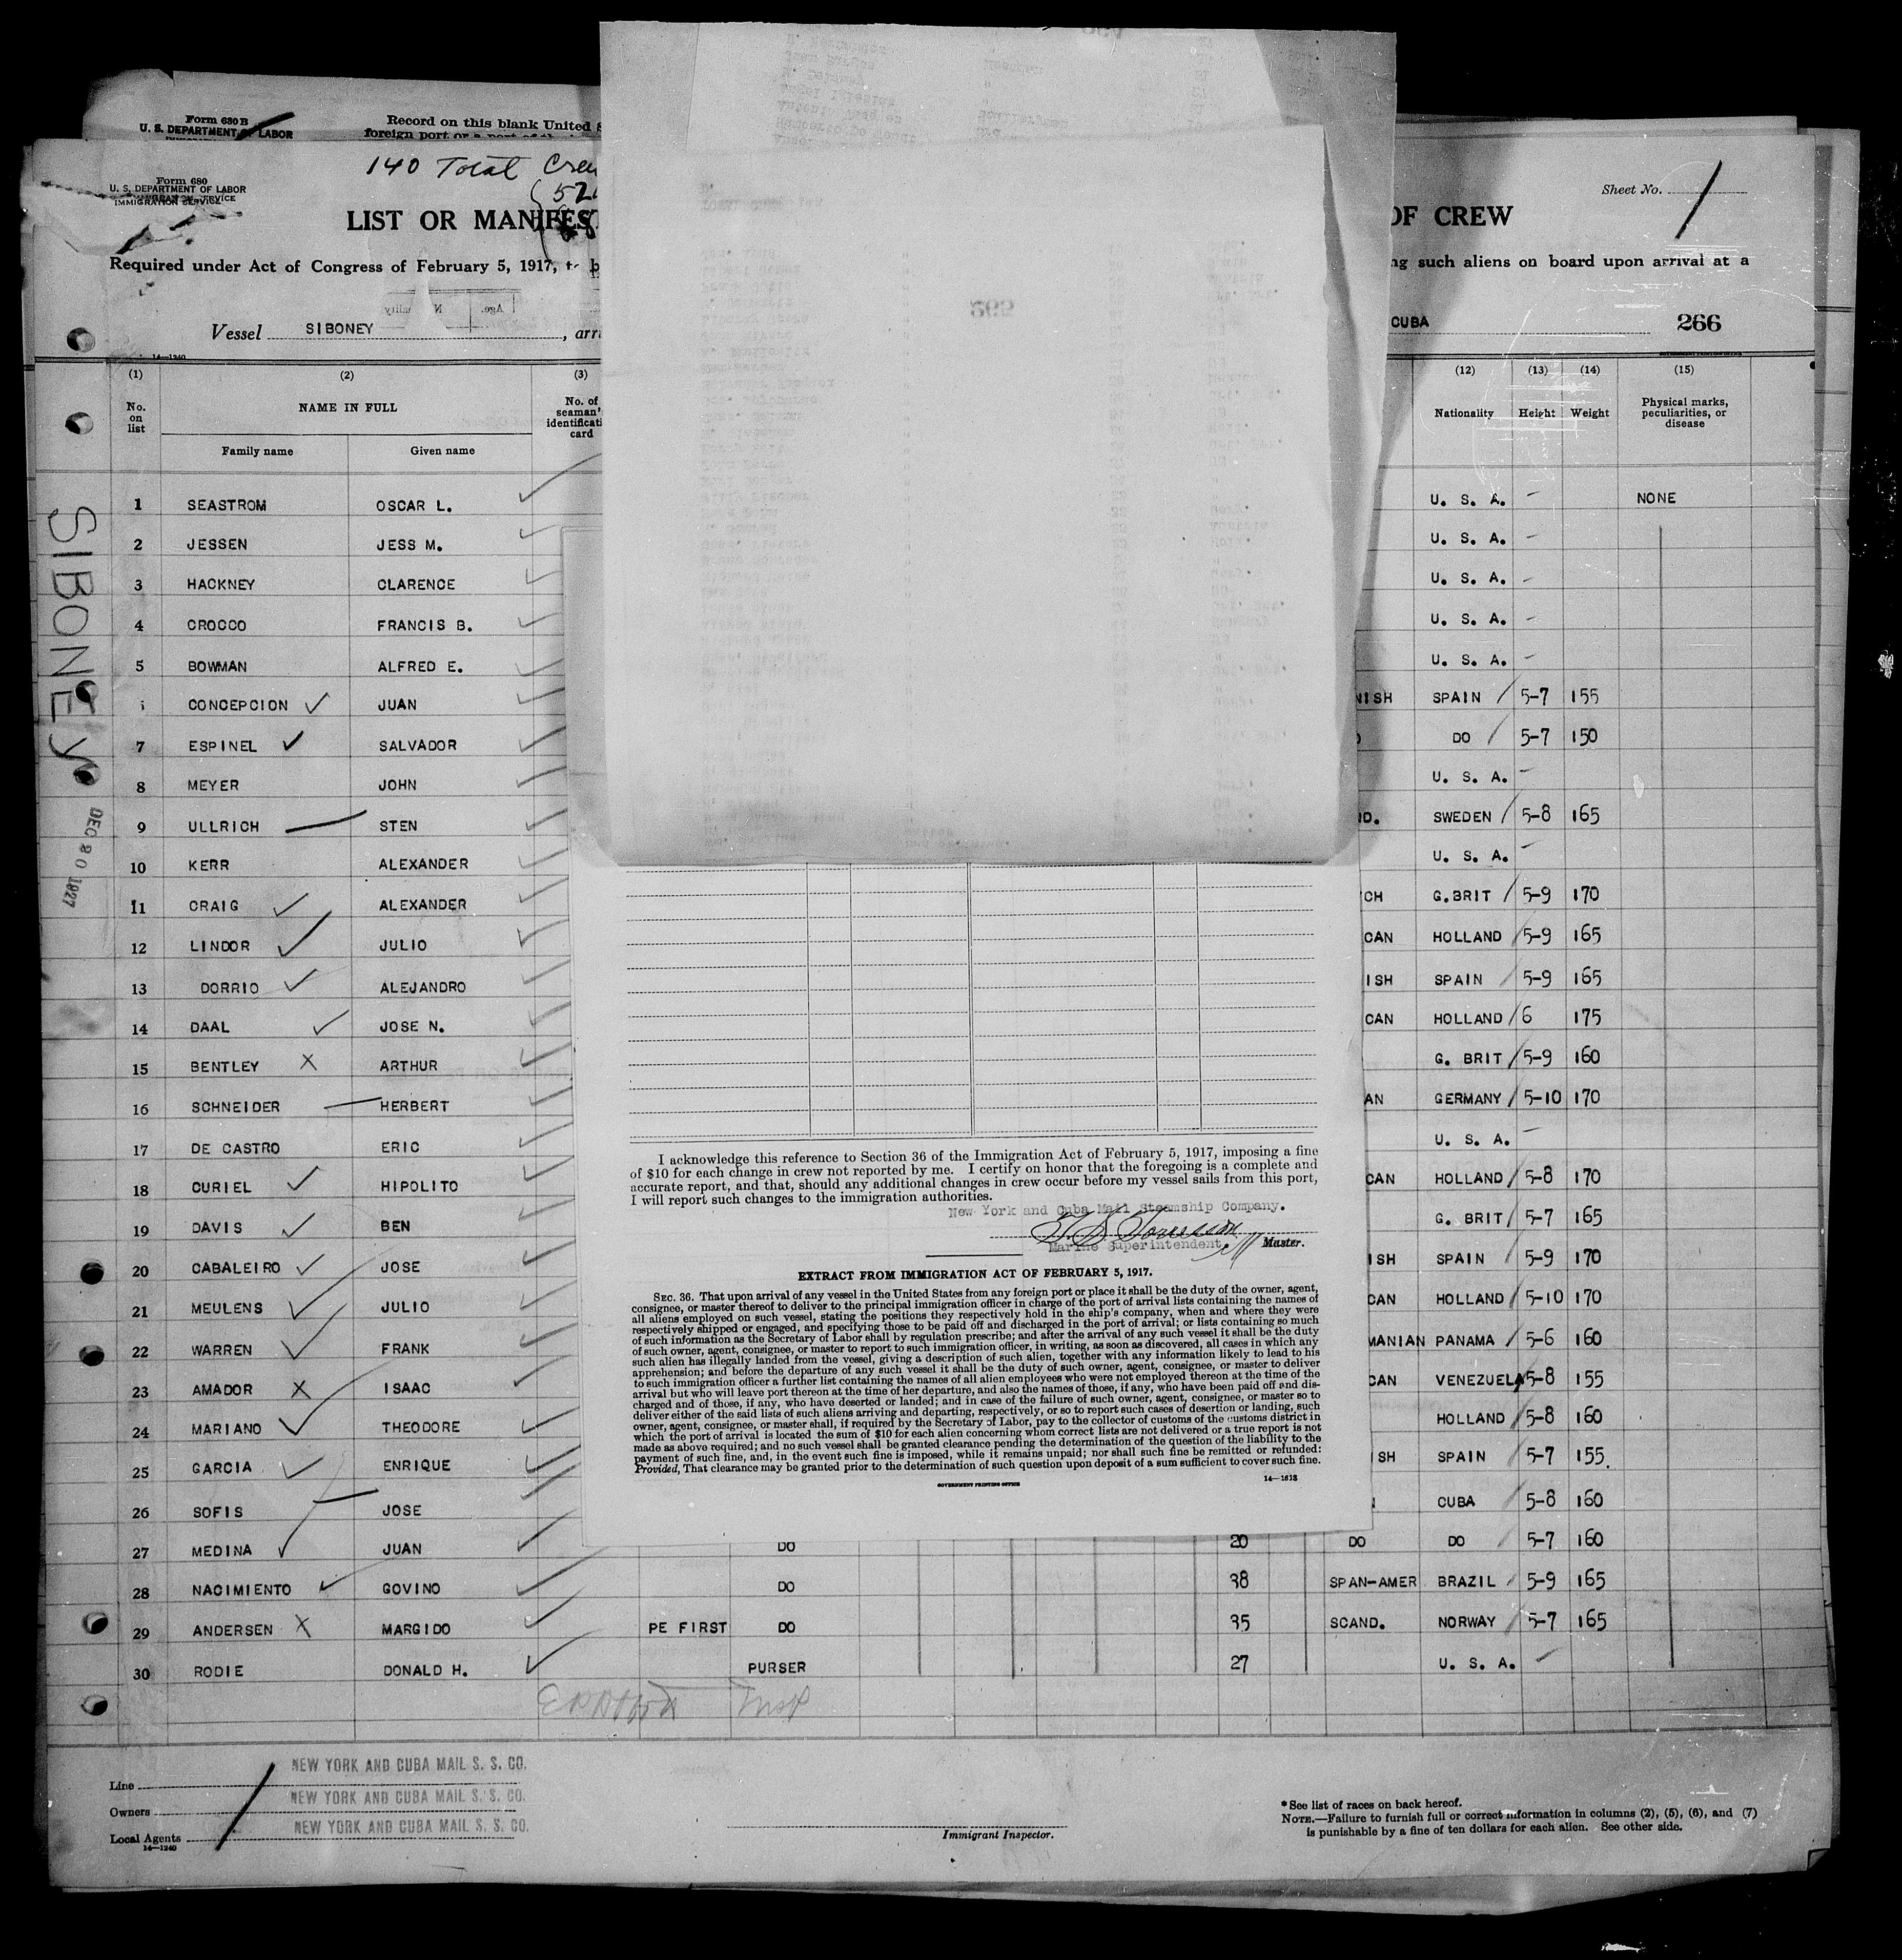 Form 680 B
U. S. DEPARTMENT OF LABOR
Record on this blank United S
foreign port or a port of the
140 Total Crew
Form 680
U. S. DEPARTMENT OF LABOR
IMMIGRATION SERVICE
52
Sheet No. 1
LIST OR MANIFEST OF CREW
Required under Act of Congress of February 5, 1917, to b ng such aliens on board upon arrival at a
Vessel SIBONEY, arri CUBA 266
14—1240
(1) (2) (3) (12) (13) (14) (15)
No. on list NAME IN FULL No. of seaman's identificati card Nationality Height Weight Physical marks, peculiarities, or disease
Family name Given name
SIBONEY
DEC 30 1927
1 SEASTROM OSCAR L. U. S. A. – NONE
2 JESSEN JESS M. U. S. A. –
3 HACKNEY CLARENCE U. S. A. –
4 CROCCO FRANCIS B. U. S. A. –
5 BOWMAN ALFRED E. U. S. A. –
CONCEPCION JUAN NISH SPAIN 5-7 155
7 ESPINEL SALVADOR DO 5-7 150
8 MEYER JOHN U. S. A. –
9 ULLRICH STEN ND. SWEDEN 5-8 165
10 KERR ALEXANDER U. S. A. –
11 CRAIG ALEXANDER CH G.BRIT 5-9 170
12 LINDOR JULIO CAN HOLLAND 5-9 165
13 DORRIO ALEJANDRO ISH SPAIN 5-9 165
14 DAAL JOSE N. CAN HOLLAND 6 175
15 BENTLEY X ARTHUR G. BRIT 5-9 160
16 SCHNEIDER HERBERT AN GERMANY 5-10 170
17 DE CASTRO ERIC U. S. A. –
18 CURIEL HIPOLITO CAN HOLLAND 5-8 170
19 DAVIS BEN G. BRIT 5-7 165
20 CABALEIRO JOSE ISH SPAIN 5-9 170
21 MEULENS JULIO CAN HOLLAND 5-10 170
22 WARREN FRANK MANIAN PANAMA 5-6 160
23 AMADOR X ISAAC CAN VENEZUELA 5-8 155
24 MARIANO THEODORE HOLLAND 5-8 160
25 GARCIA ENRIQUE SH SPAIN 5-7 155
26 SOFIS JOSE CUBA 5-8 160
27 MEDINA JUAN DO 20 DO DO 5-7 160
28 NACIMIENTO GOVINO DO 38 SPAN-AMER BRAZIL 5-9 165
29 ANDERSEN X MARGIDO PE FIRST DO 35 SCAND. NORWAY 5-7 165
30 RODIE DONALD H. PURSER 27 U. S. A. –
I acknowledge this reference to Section 36 of the Immigration Act of February 5, 1917, imposing a fine
of $10 for each change in crew not reported by me. I certify on honor that the foregoing is a complete and
accurate report, and that, should any additional changes in crew occur before my vessel sails from this port,
I will report such changes to the immigration authorities.
New York and Cuba Mail Steamship Company.
Marine Superintendent. Master.
EXTRACT FROM IMMIGRATION ACT OF FEBRUARY 5, 1917.
SEC. 36. That upon arrival of any vessel in the United States from any foreign port or place it shall be the duty of the owner, agent,
consignee, or master thereof to deliver to the principal immigration officer in charge of the port of arrival lists containing the names of
all aliens employed on such vessel, stating the positions they respectively hold in the ship's company, when and where they were
respectively shipped or engaged, and specifying those to be paid off and discharged in the port of arrival; or lists containing so much
of such information as the Secretary of Labor shall by regulation prescribe; and after the arrival of any such vessel it shall be the duty
of such owner, agent, consignee, or master to report to such immigration officer, in writing, as soon as discovered, all cases in which any
such alien has illegally landed from the vessel, giving a description of such alien, together with any information likely to lead to his
apprehension; and before the departure of any such vessel it shall be the duty of such owner, agent, consignee, or master to deliver
to such immigration officer a further list containing the names of all alien employees who were not employed thereon at the time of the
arrival but who will leave port thereon at the time of her departure, and also the names of those, if any, who have been paid off and dis-
charged and of those, if any, who have deserted or landed; and in case of the failure of such owner, agent, consignee, or master so to
deliver either of the said lists of such aliens arriving and departing, respectively, or so to report such cases of desertion or landing, such
owner, agent, consignee, or master shall, if required by the Secretary of Labor, pay to the collector of customs of the customs district in
which the port of arrival is located the sum of $10 for each alien concerning whom correct lists are not delivered or a true report is not
made as above required; and no such vessel shall be granted clearance pending the determination of the question of the liability to the
payment of such fine, and, in the event such fine is imposed, while it remains unpaid; nor shall such fine be remitted or refunded:
Provided, That clearance may be granted prior to the determination of such question upon deposit of a sum sufficient to cover such fine.
GOVERNMENT PRINTING OFFICE 14—1613
Line NEW YORK AND CUBA MAIL S. S. CO.
Owners NEW YORK AND CUBA MAIL S. S. CO.
Local Agents NEW YORK AND CUBA MAIL S. S. CO.
14—1240
Immigrant Inspector.
*See list of races on back hereof.
NOTE.—Failure to furnish full or correct information in columns (2), (5), (6), and (7)
is punishable by a fine of ten dollars for each alien. See other side.